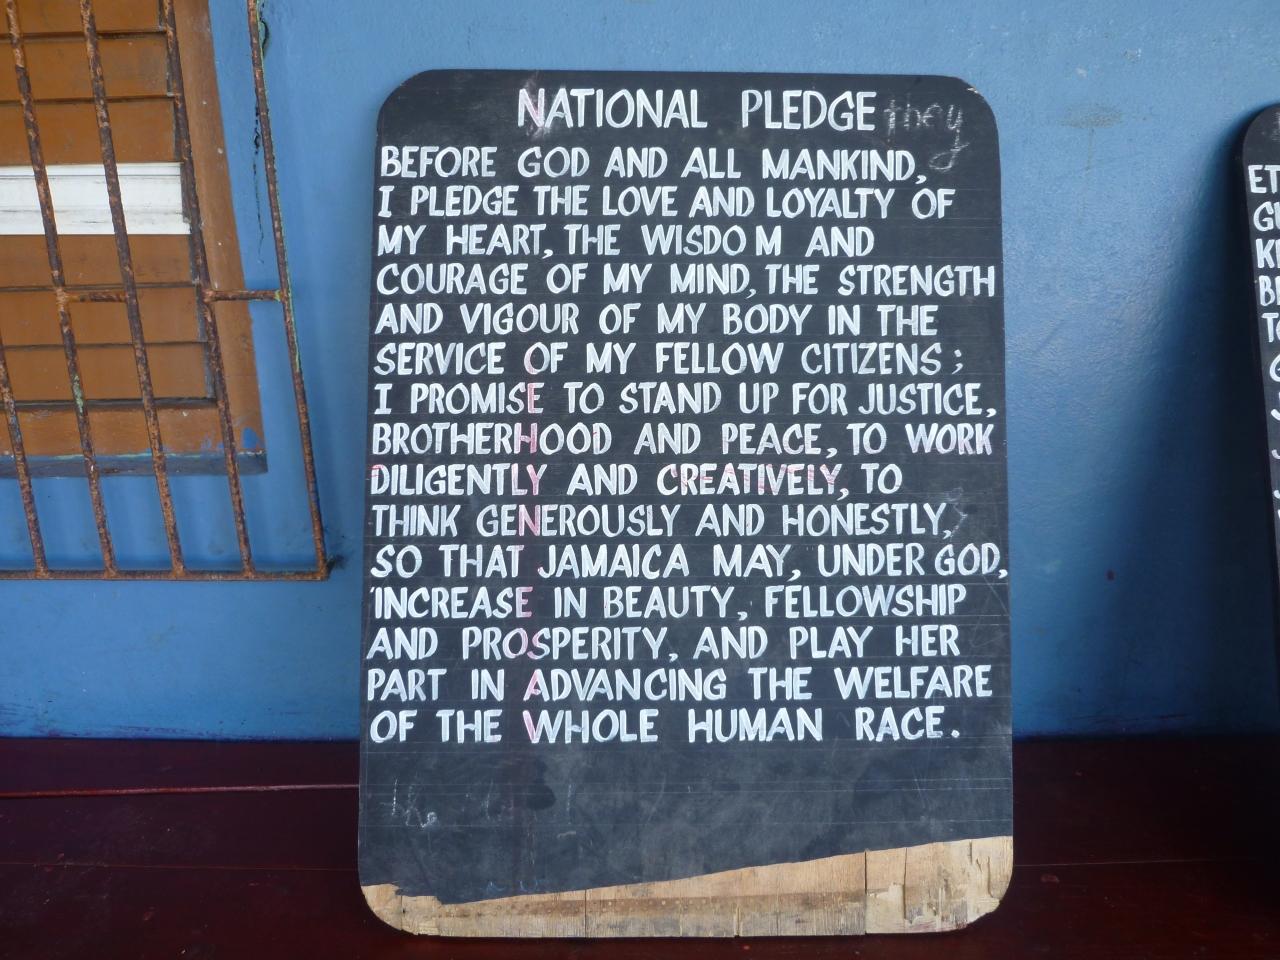 NATIONAL PLEDGE they
BEFORE GOD AND ALL MANKIND,
I PLEDGE THE LOVE AND LOYALTY OF
MY HEART, THE WISDOM AND
COURAGE OF MY MIND, THE STRENGTH
AND VIGOUR OF MY BODY IN THE
SERVICE OF MY FELLOW CITIZENS;
I PROMISE TO STAND UP FOR JUSTICE,
BROTHERHOOD AND PEACE, TO WORK
DILIGENTLY AND CREATIVELY, TO
THINK GENEROUSLY AND HONESTLY,
SO THAT JAMAICA MAY, UNDER GOD,
INCREASE IN BEAUTY, FELLOWSHIP
AND PROSPERITY, AND PLAY HER
PART IN ADVANCING THE WELFARE
OF THE WHOLE HUMAN RACE.